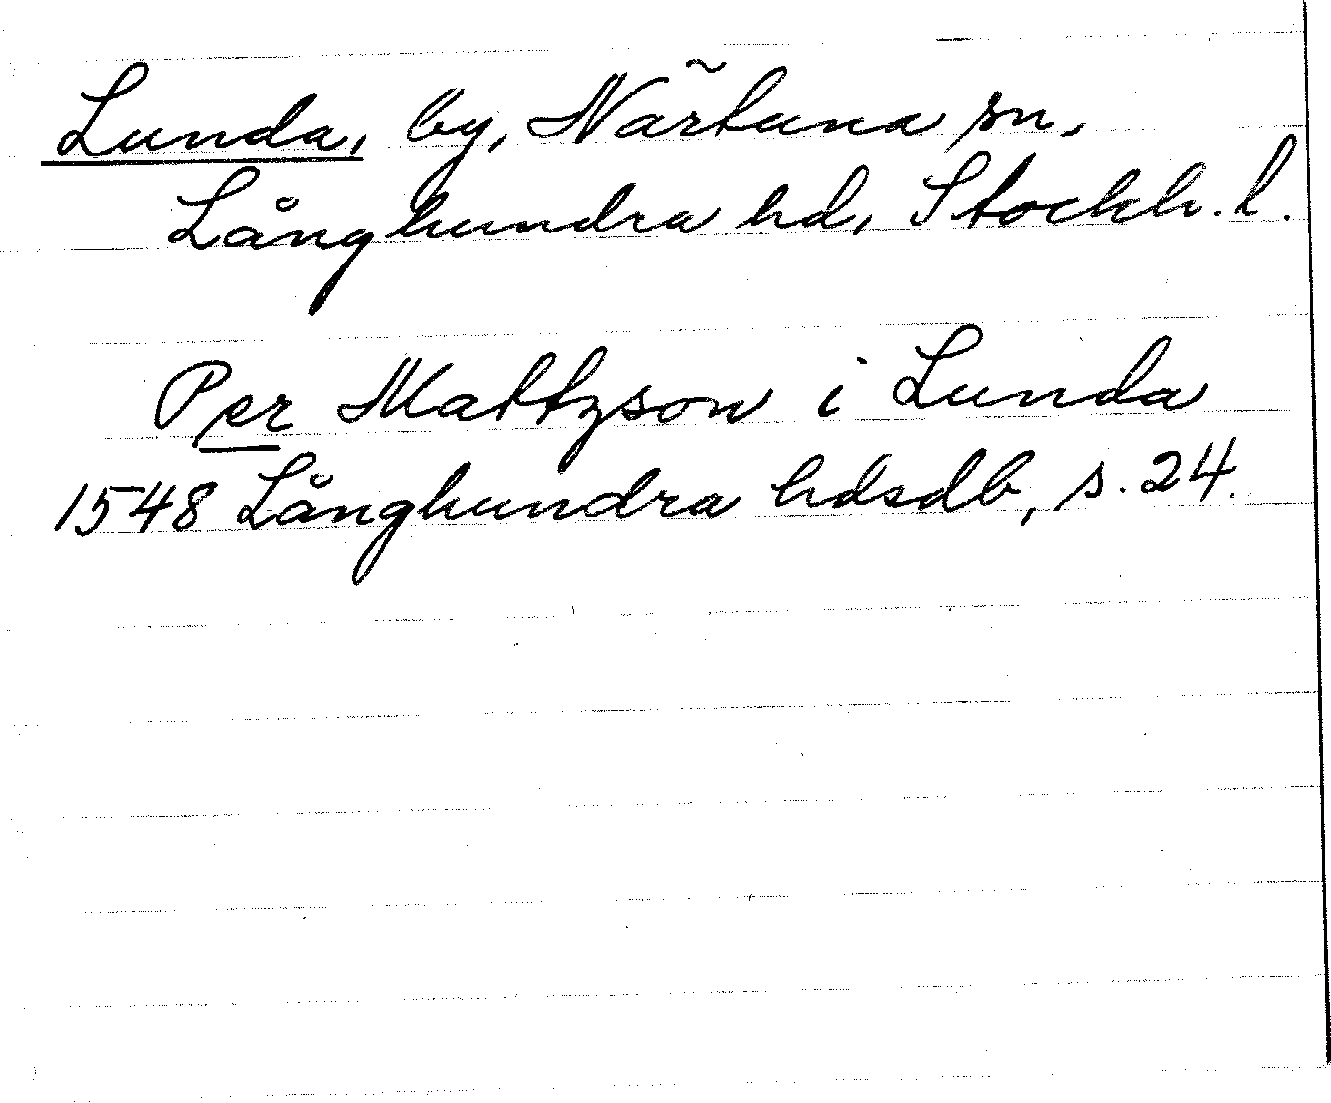 Lunda, by, Närtuna sn,
Långhundra hd, Stockh. l.
Per Mattzson i Lunda
1548 Långhundra hdsdb, s. 24.